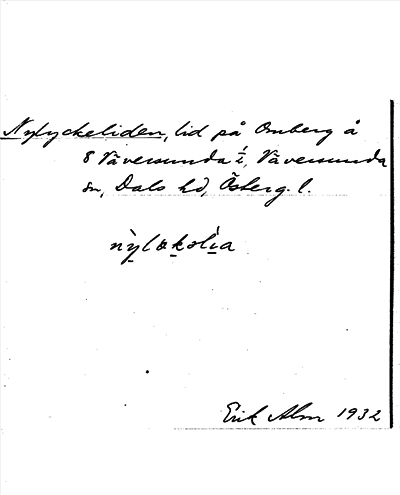 Nylyckeliden, lid på Omberg å
8 Väversunda ½, Väversunda
sn, Dals hd, Österg. l.
nỳləkəlìa
Erik Alm 1932